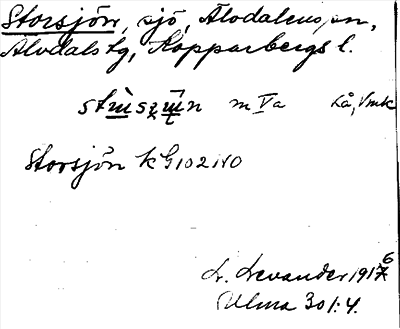 Storsjön, sjö, Älvdalens sn,
Älvdals tg, Kopparbergs l.
m Va Lå, Vmk
Storsjön kG102 NO
L. Levander 1916
Ulma 301:4.